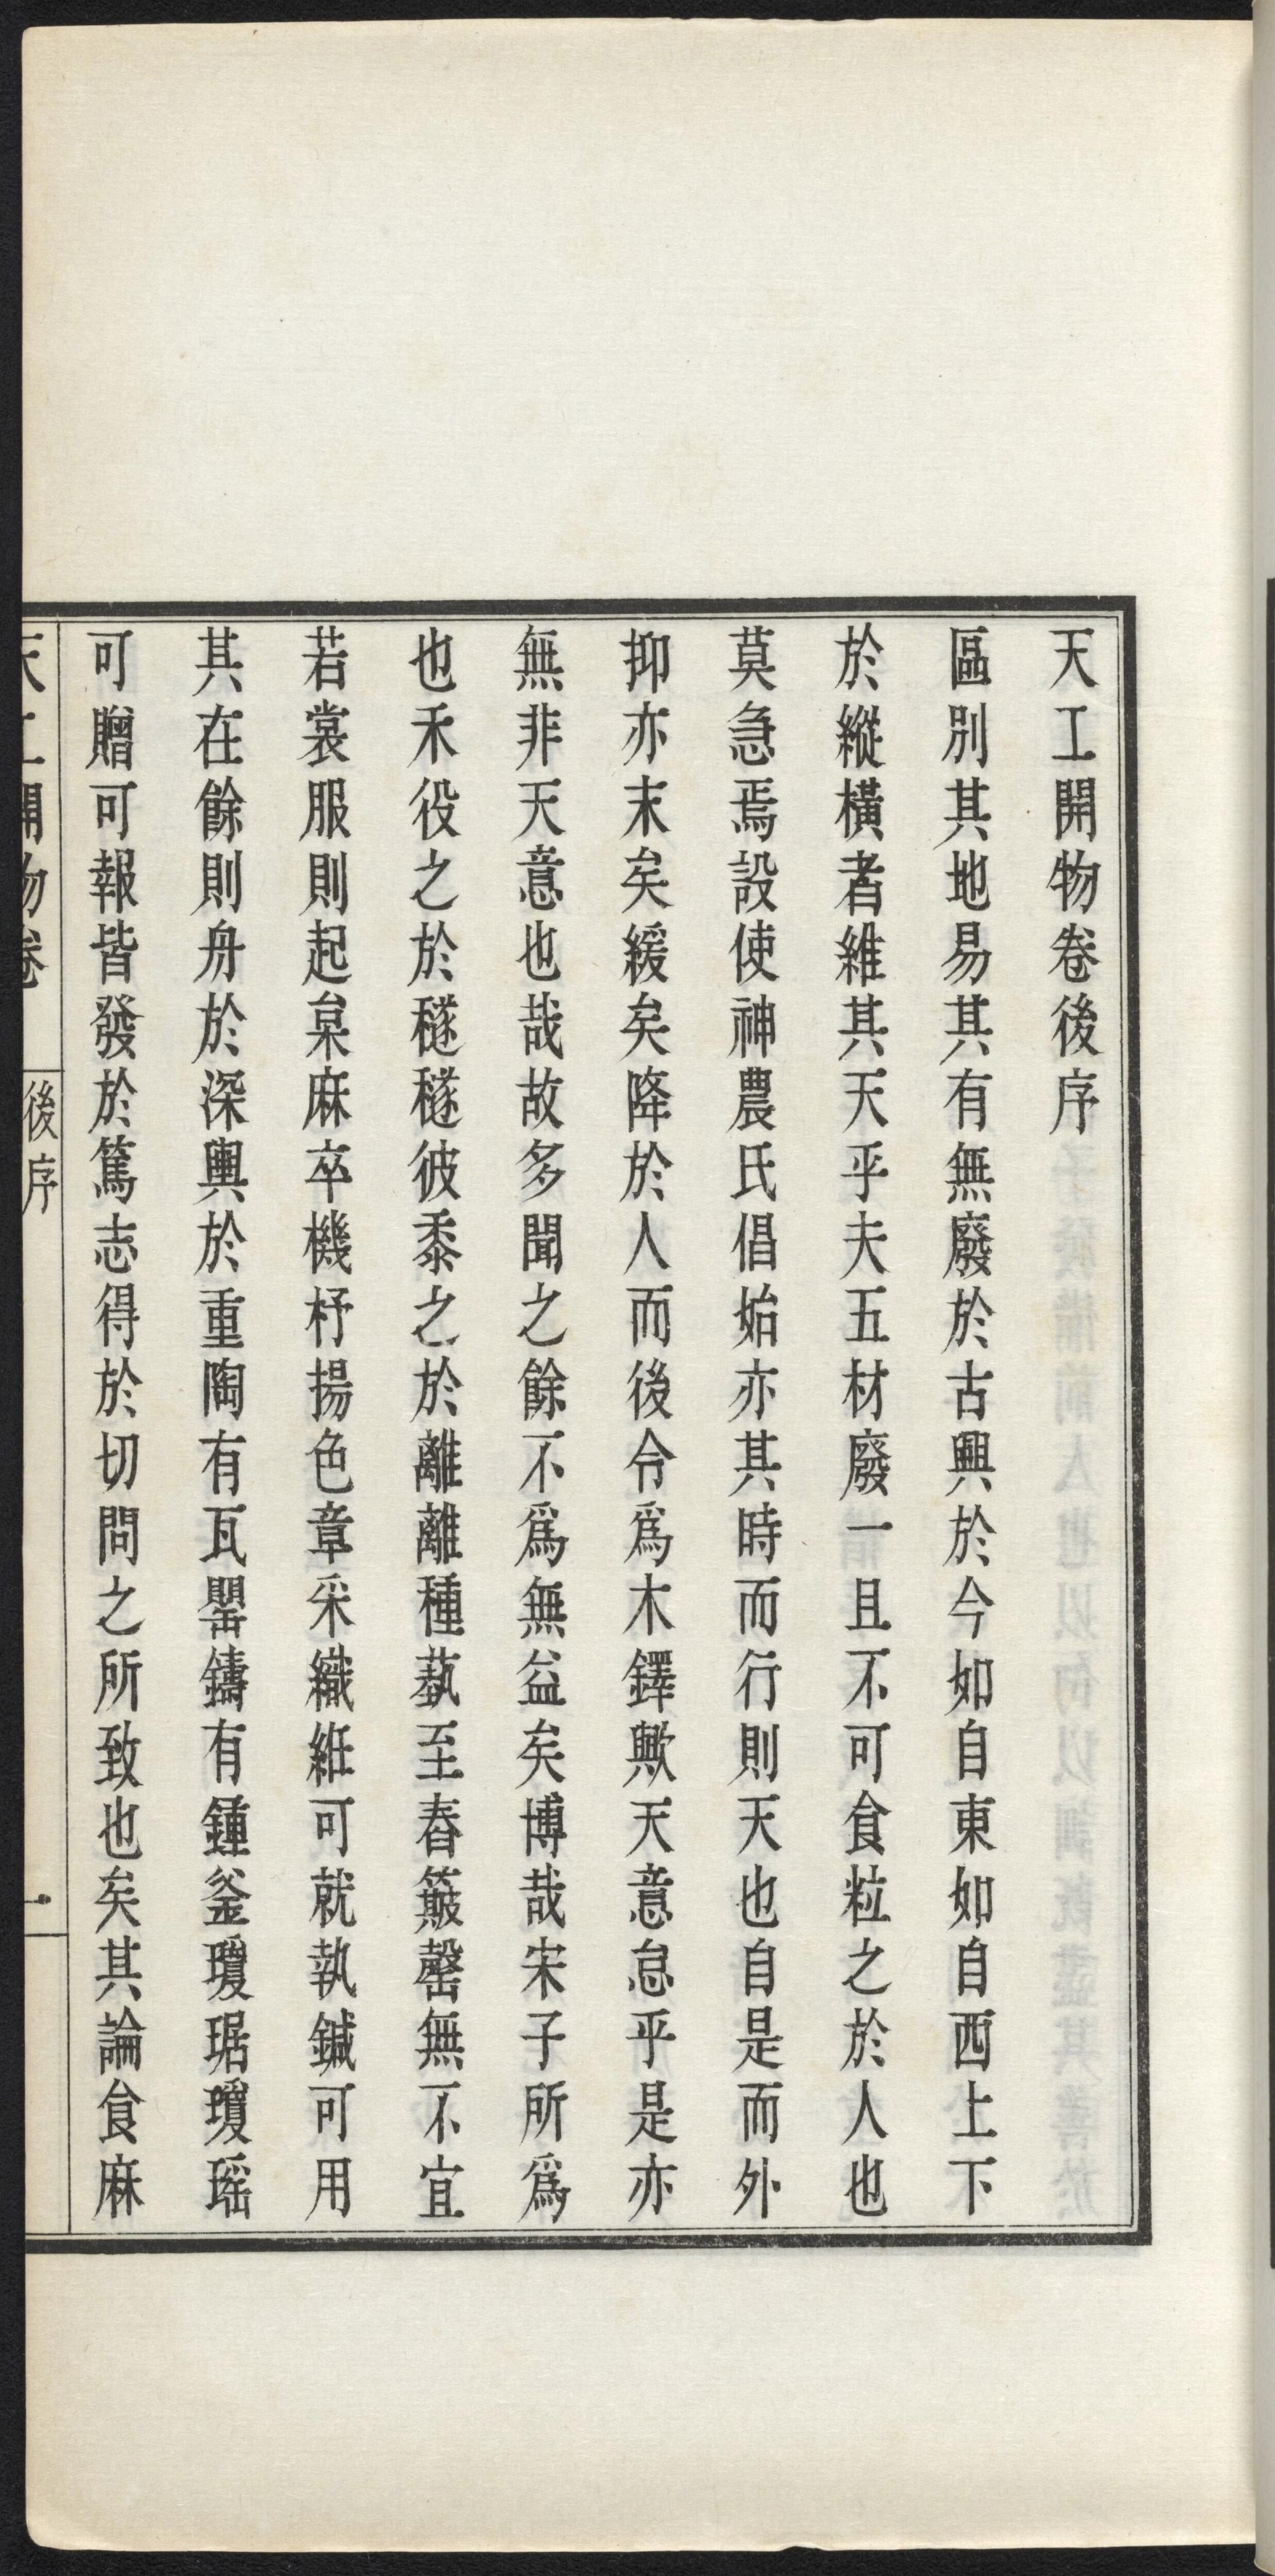 天工開物卷後序
區別其地易其有無廢於古興於今如自東如自西上下
於縱橫者維其天乎夫五材廢一且不可食粒之於人也
莫急焉設使神農氏倡始亦其時而行則天也自是而外
抑亦末矣緩矣降於人而後令爲木鐸歟天意怠乎是亦
無非天意也哉故多聞之餘不爲無益矣博哉宋子所爲
也禾役之於穟穟彼黍之於離離種蓺至舂簸罄無不宜
若裳服則起枲麻卒機杼揚色章采織絍可就執鍼可用
其在餘則舟於深輿於重陶有瓦罌鑄有鍾釜瓊琚瓊瑶
可贈可報皆發於篤志得於切問之所致也矣其論食麻
天工開物卷 後序 一